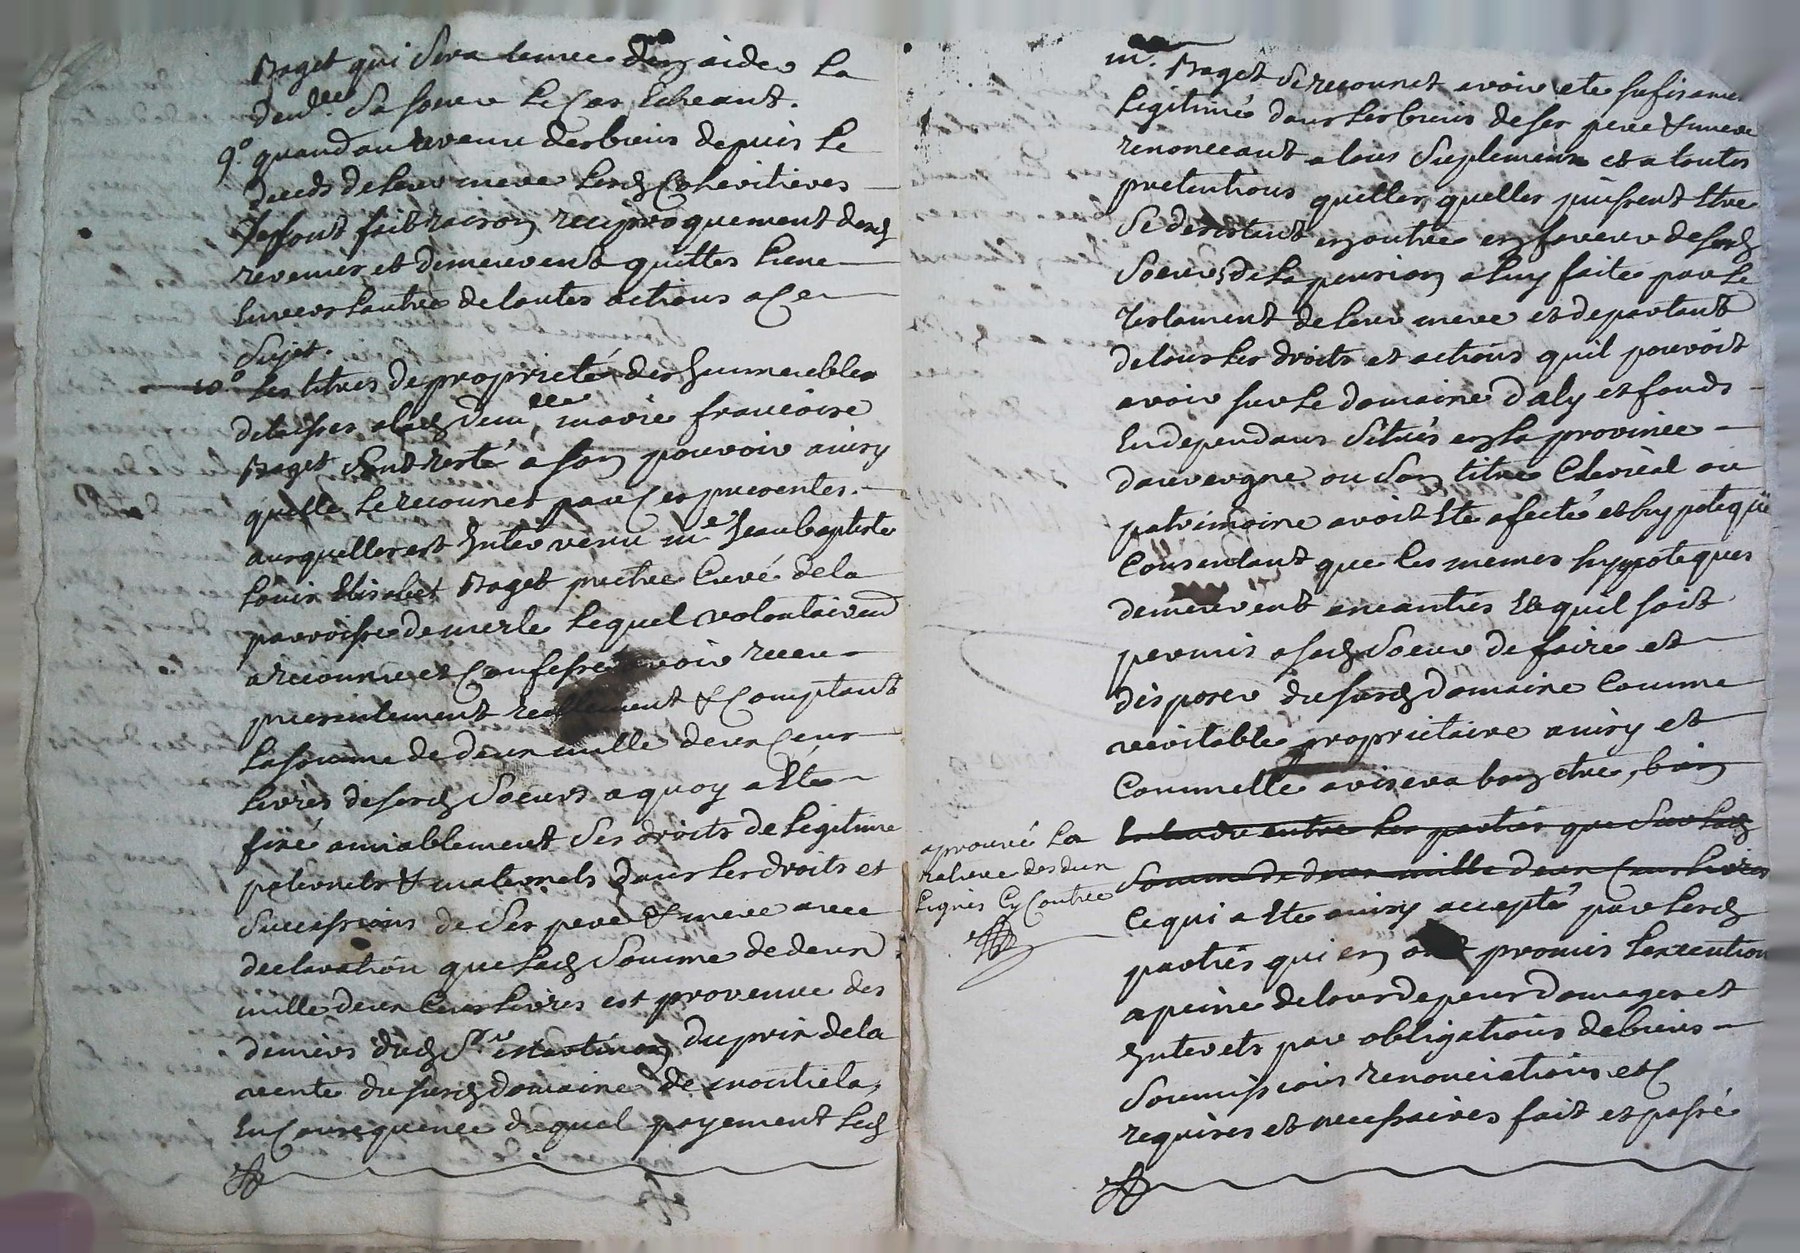 Baget qui sera tenue d'en aider la
dem.lle sa soeur le cas echeant.
9.° quand au revenu des biens depuis le
deces de leur mere lesd coheritieres
se sont fait raison reciproquement desd
revenus et demeurent quittes l'une
envers lautre de toutes actions a ce
sujet.
10° les titres de propriété des immeubles
delaissés a lad dem.lle marie francoise
Baget sont resté a son pouvoir ainsy
quelle le reconnet par ces presentes.
auxquelles est intervenu m.e Jean baptiste
Louis Elisabet Baget pretre curé de la
parroisse de merle lequel volontairemt
a reconnu et confessé avoir receu
presentement reellement & comptant
la somme de deux mille deux cens
livres de sesd soeurs a quoy a ete
fixé amiablement ses droits de legitime
paternels & maternels dans les droits et
successions de ses pere & mere avec
declaration que lad somme de deux
mille deux cens livres est provenue des
deniers dud S.r du prix de la
vente du susd domaine de montiela,
en consequence duquel payement led
m.e Baget se reconnet avoir ete sufisamen
legitimé dans les biens de ses pere & mere
renonceant a tous suplemens et a toutes
pretentions quelles quelles puissent etre
se desistant en outre en faveur de sesd
soeurs de la pension a luy faite par le
testament de leur mere et departant
de tous les droits et actions quil pouvoit
avoir sur le domaine daly et fonds
en dependans situés en la province
dauvergne ou son titre clerical ou
patrimoine avoit ete afecté et hypotequé
consentant que les memes hypoteques
demeurent aneanties et quil soit
permis a sad soeur de faire et
disposer du susd domaine comme
veritable proprietaire ainsy et
comme elle avisera bon etre, bien
entendu entre les parties que sur lad
somme de deux mille deux cens livres
aprouvé la
rature des deux
lignes cy contre
ce qui a ete ainsy accepté par lesd
parties qui en ont promis lexecution
a peine de tous depens domages et
interets par obligations de biens
soumissions renonciations etc
requises et necessaires fait et passé